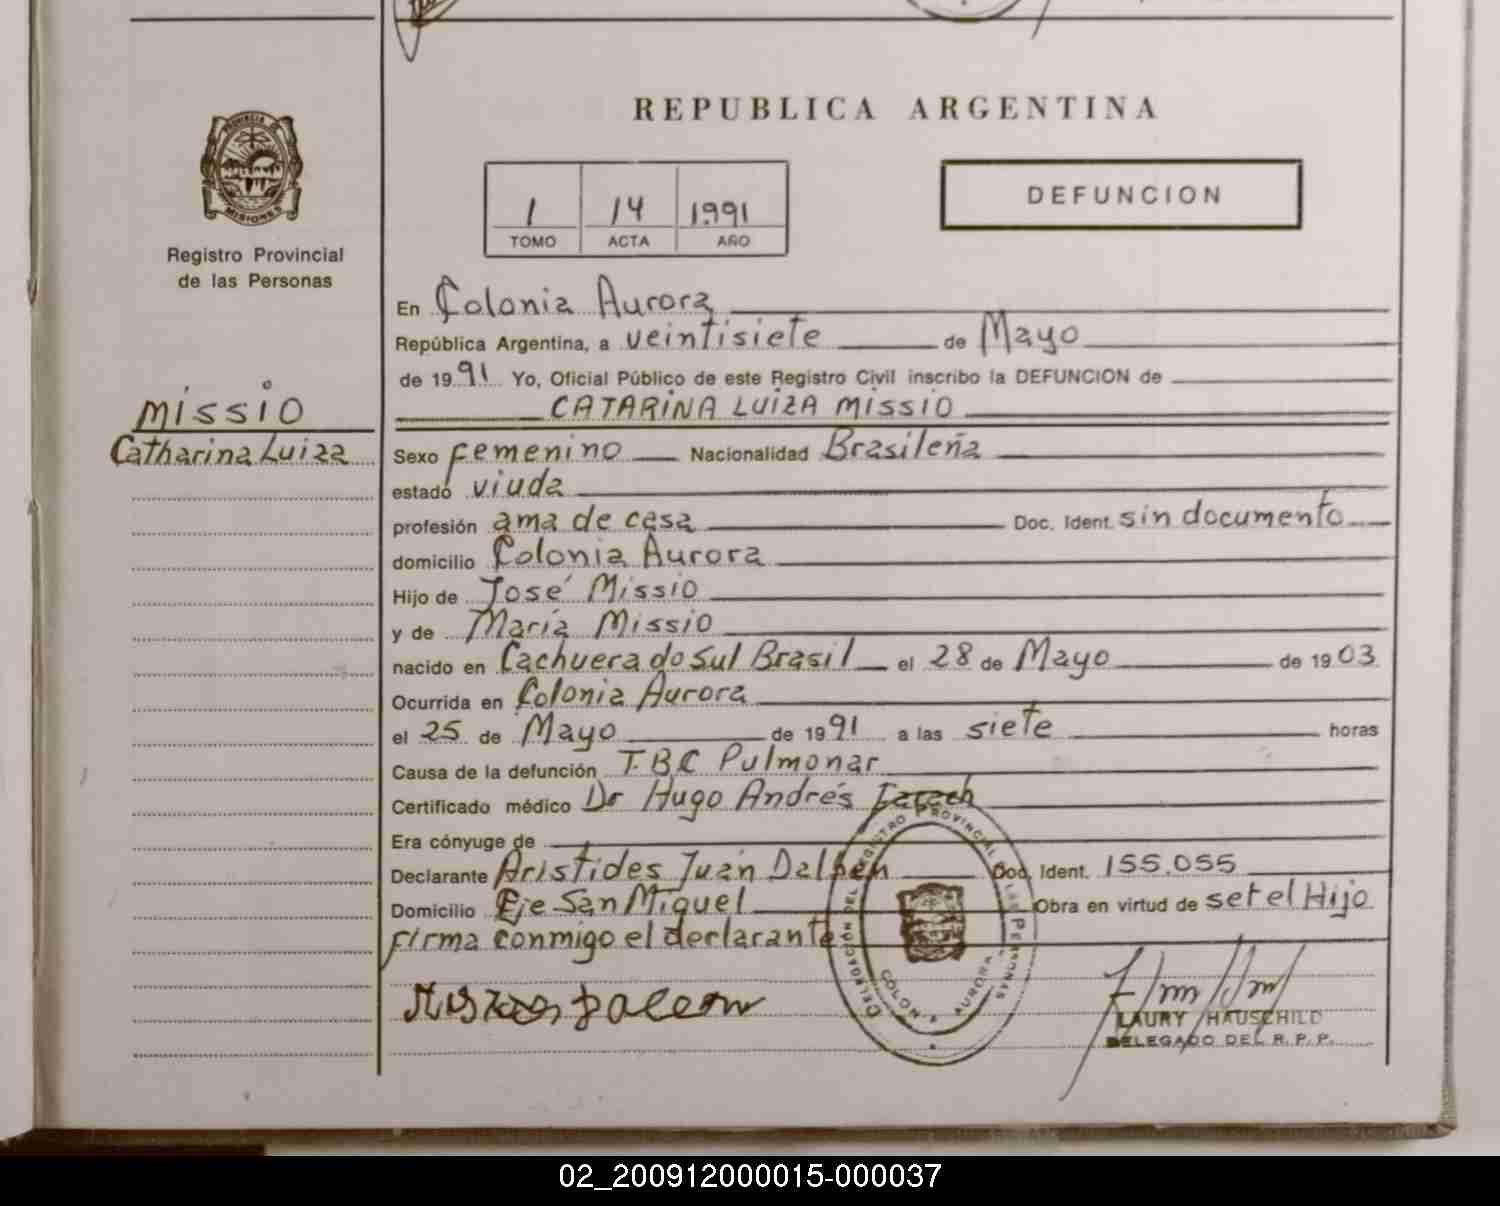 REPUBLICA ARGENTINA
PROVINCIA DE MISIONES
Registro Provincial
de las Personas
1 14 1991
TOMO ACTA AÑO
DEFUNCION
Missio
Catharina Luiza
En Colonia Aurora
República Argentina, a veintisiete de Mayo
de 1991 Yo, Oficial Público de este Registro Civil inscribo la DEFUNCION de
CATARINA LUIZA MISSIO
Sexo femenino Nacionalidad Brasileña
estado viuda
profesión ama de casa Doc. Ident. sin documento
domicilio Colonia Aurora
Hijo de José Missio
y de María Missio
nacido en Cachuera do Sul Brasil el 28 de Mayo de 1903
Ocurrida en Colonia Aurora
el 25 de Mayo de 1991 a las siete horas
Causa de la defunción T.B.C Pulmonar
Certificado médico Dr Hugo Andrés
Era cónyuge de
Declarante Aristides Juan Dalpen Doc. Ident. 155.055
Domicilio Eje San Miguel Obra en virtud de ser el Hijo
firma conmigo el declarante
DELEGACIÓN DEL REGISTRO PROVINCIAL DE LAS PERSONAS
COLONIA AURORA
LAURY HAUSCHILD
DELEGADO DEL R. P. P.
02_200912000015-000037